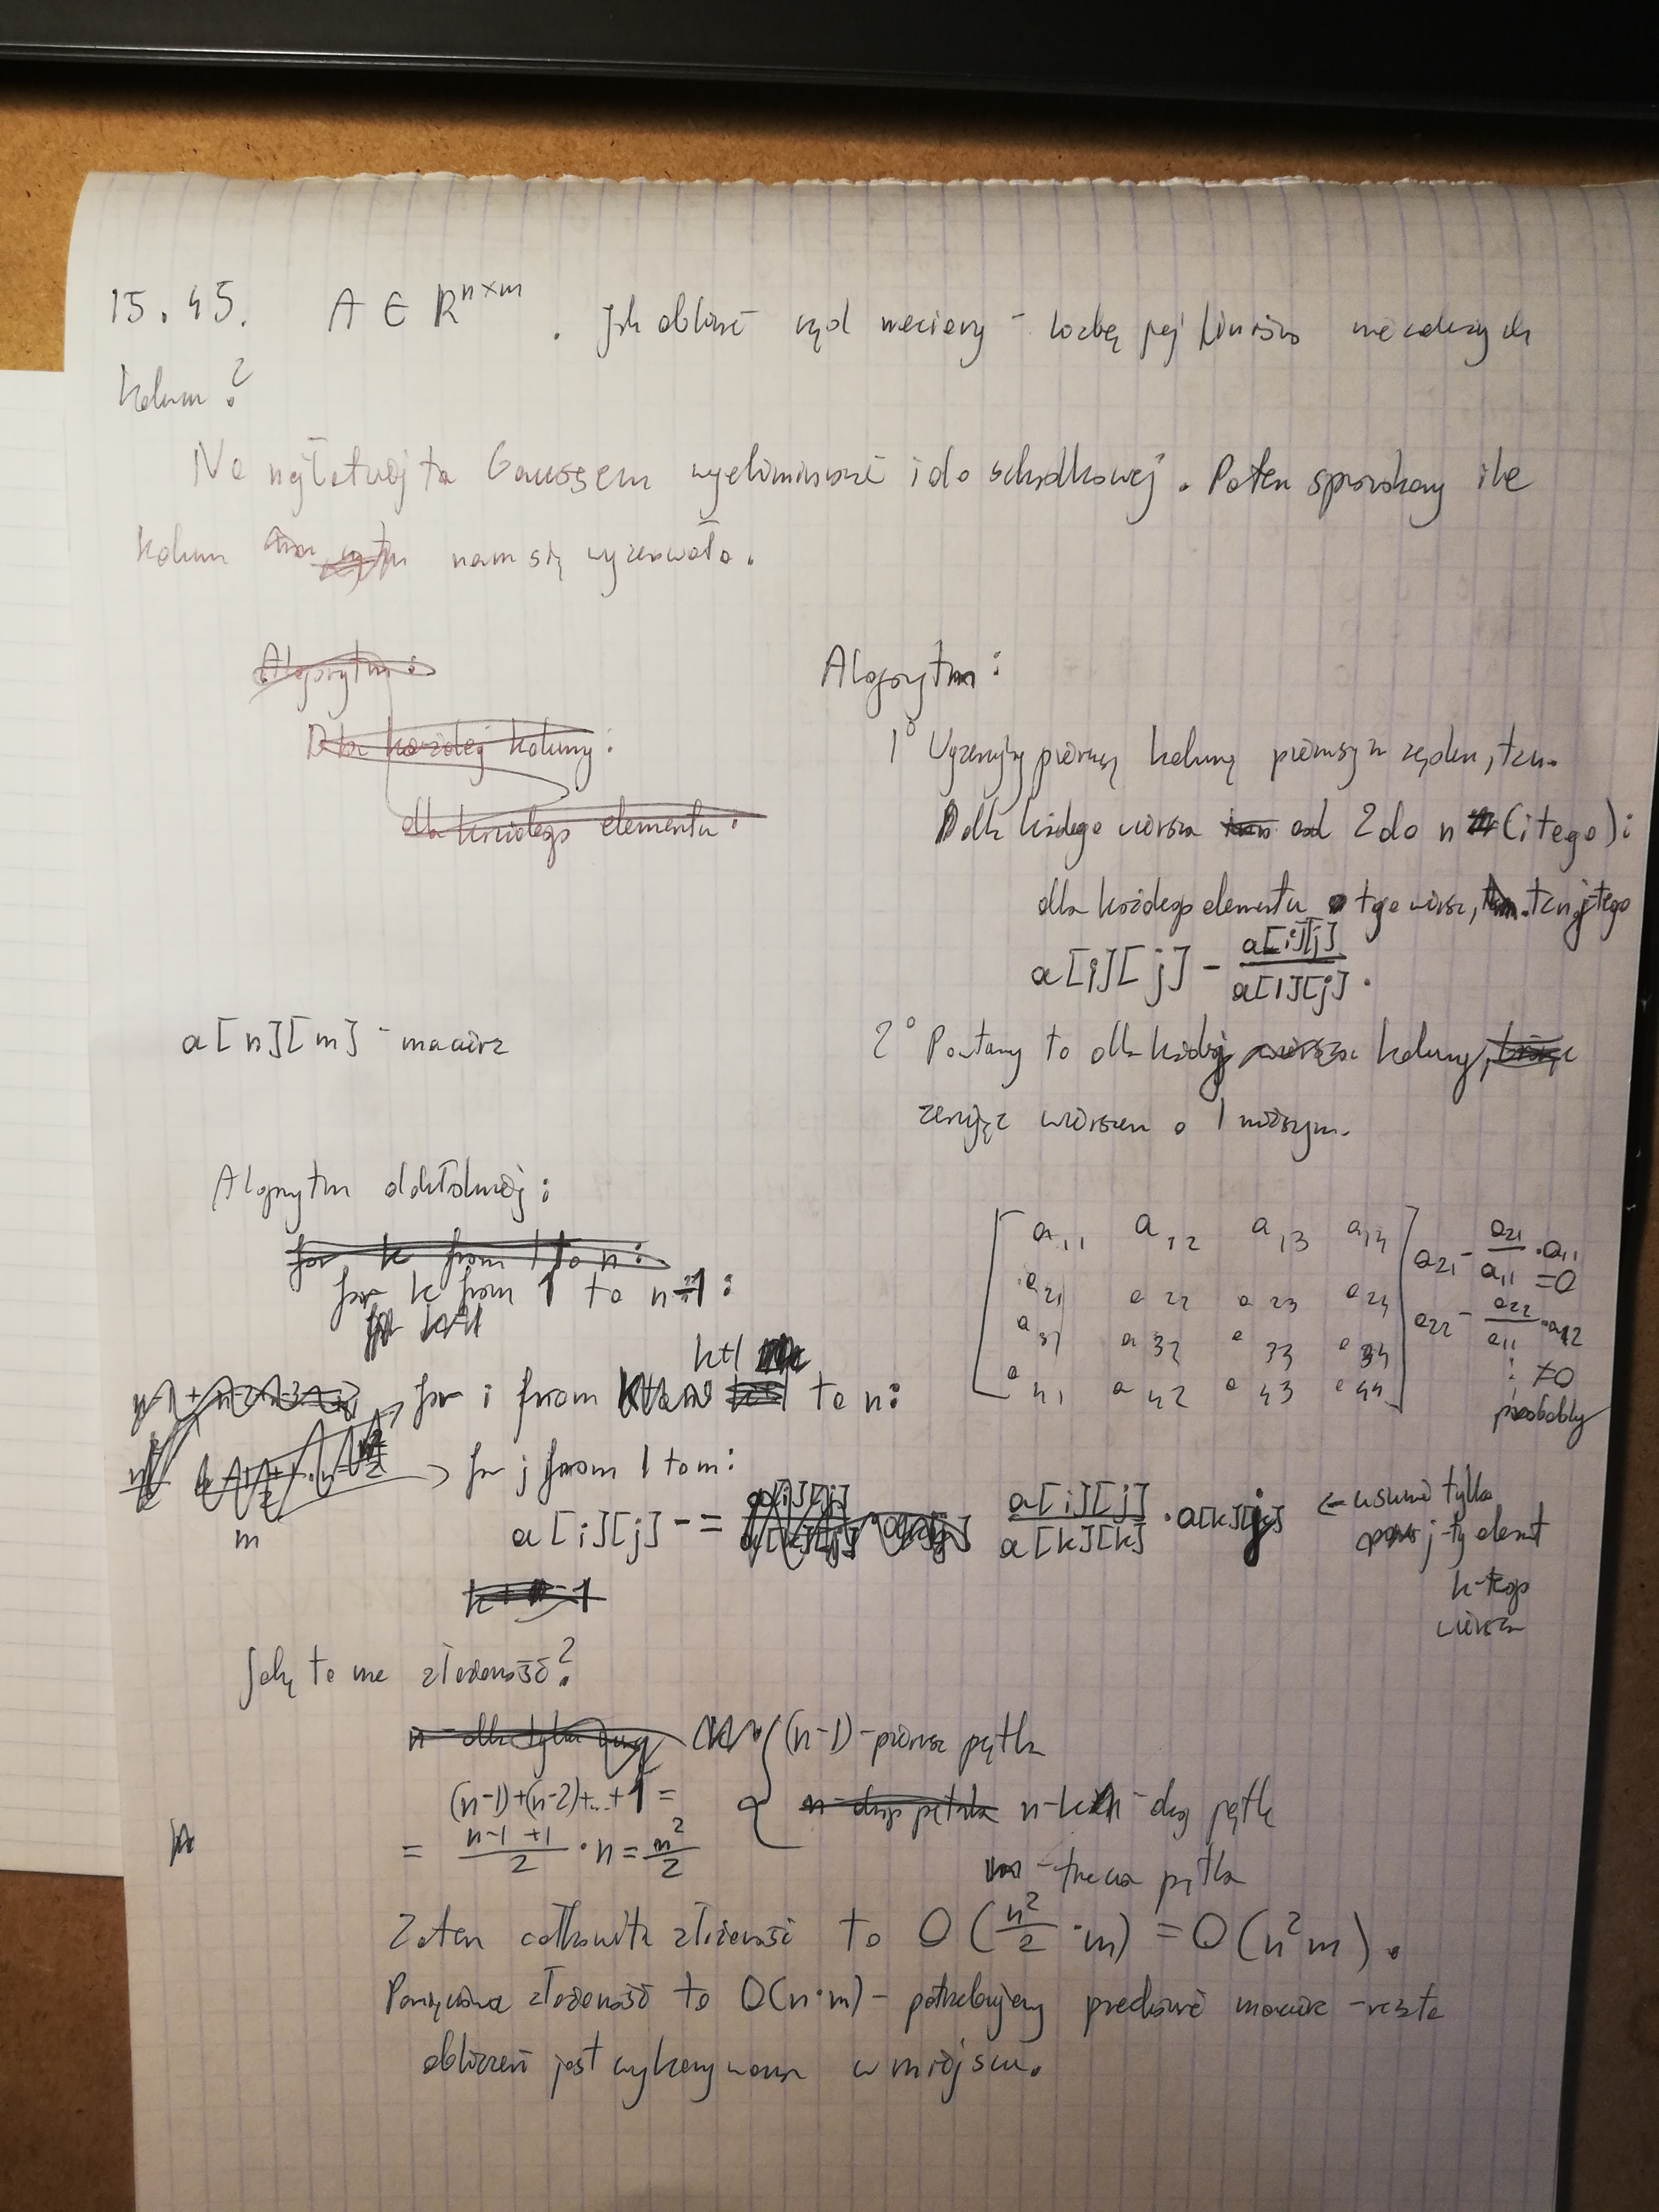 15.45. A ∈ R^{n×m}. Jak obliczyć rząd macierzy - liczbę jej liniowo niezależnych
kolumn?
Na najłatwiej to Gaussem wyeliminować i do schodkowej. Potem sprawdzamy ile
kolumn nam się wyzerowało.
Algorytm:
Dla każdej kolumny:
dla każdego elementu:
Algorytm:
1° Wyzerujmy pierwszą kolumnę pierwszym rzędem, tzn.
dla każdego wiersza od 2 do n (i tego):
dla każdego elementu tego wiersz, tzn j-tego
a[i][j] - \frac{a[i][j]}{a[1][j]}.
a[n][m] - macierz
2° Powtarzamy to dla każdej kolumny,
zerując wierszem o 1 niższym.
Algorytm dokładniej:
for k from 1 to n:
for k from 1 to n-1:
for i from k+1 to n:
for j from 1 to m:
m
a[i][j] -= \frac{a[i][j]}{a[k][k]} · a[k][j] ← usuwa tylko
j-ty element
k-tego
wiersza
a₁₁ a₁₂ a₁₃ a₁₄
a₂₁ a₂₂ a₂₃ a₂₄
a₃₁ a₃₂ a₃₃ a₃₄
a₄₁ a₄₂ a₄₃ a₄₄
a₂₁ - \frac{a₂₁}{a₁₁} · a₁₁ = 0
a₂₂ - \frac{a₂₂}{a₁₁} · a₁₂
⋮ ≠ 0
probably
Jaką to ma złożoność?
(n-1) - pierwsza pętla
(n-1)+(n-2)+...+1 =
= \frac{n-1+1}{2} · n = \frac{n²}{2}
n-k - drug pętla
m - trzecia pętla
Zatem całkowita złożoność to O(\frac{n²}{2} · m) = O(n²m).
Pamięciowa złożoność to O(n·m) - potrzebujemy przechować macierz - reszta
obliczeń jest wykonywana w miejscu.